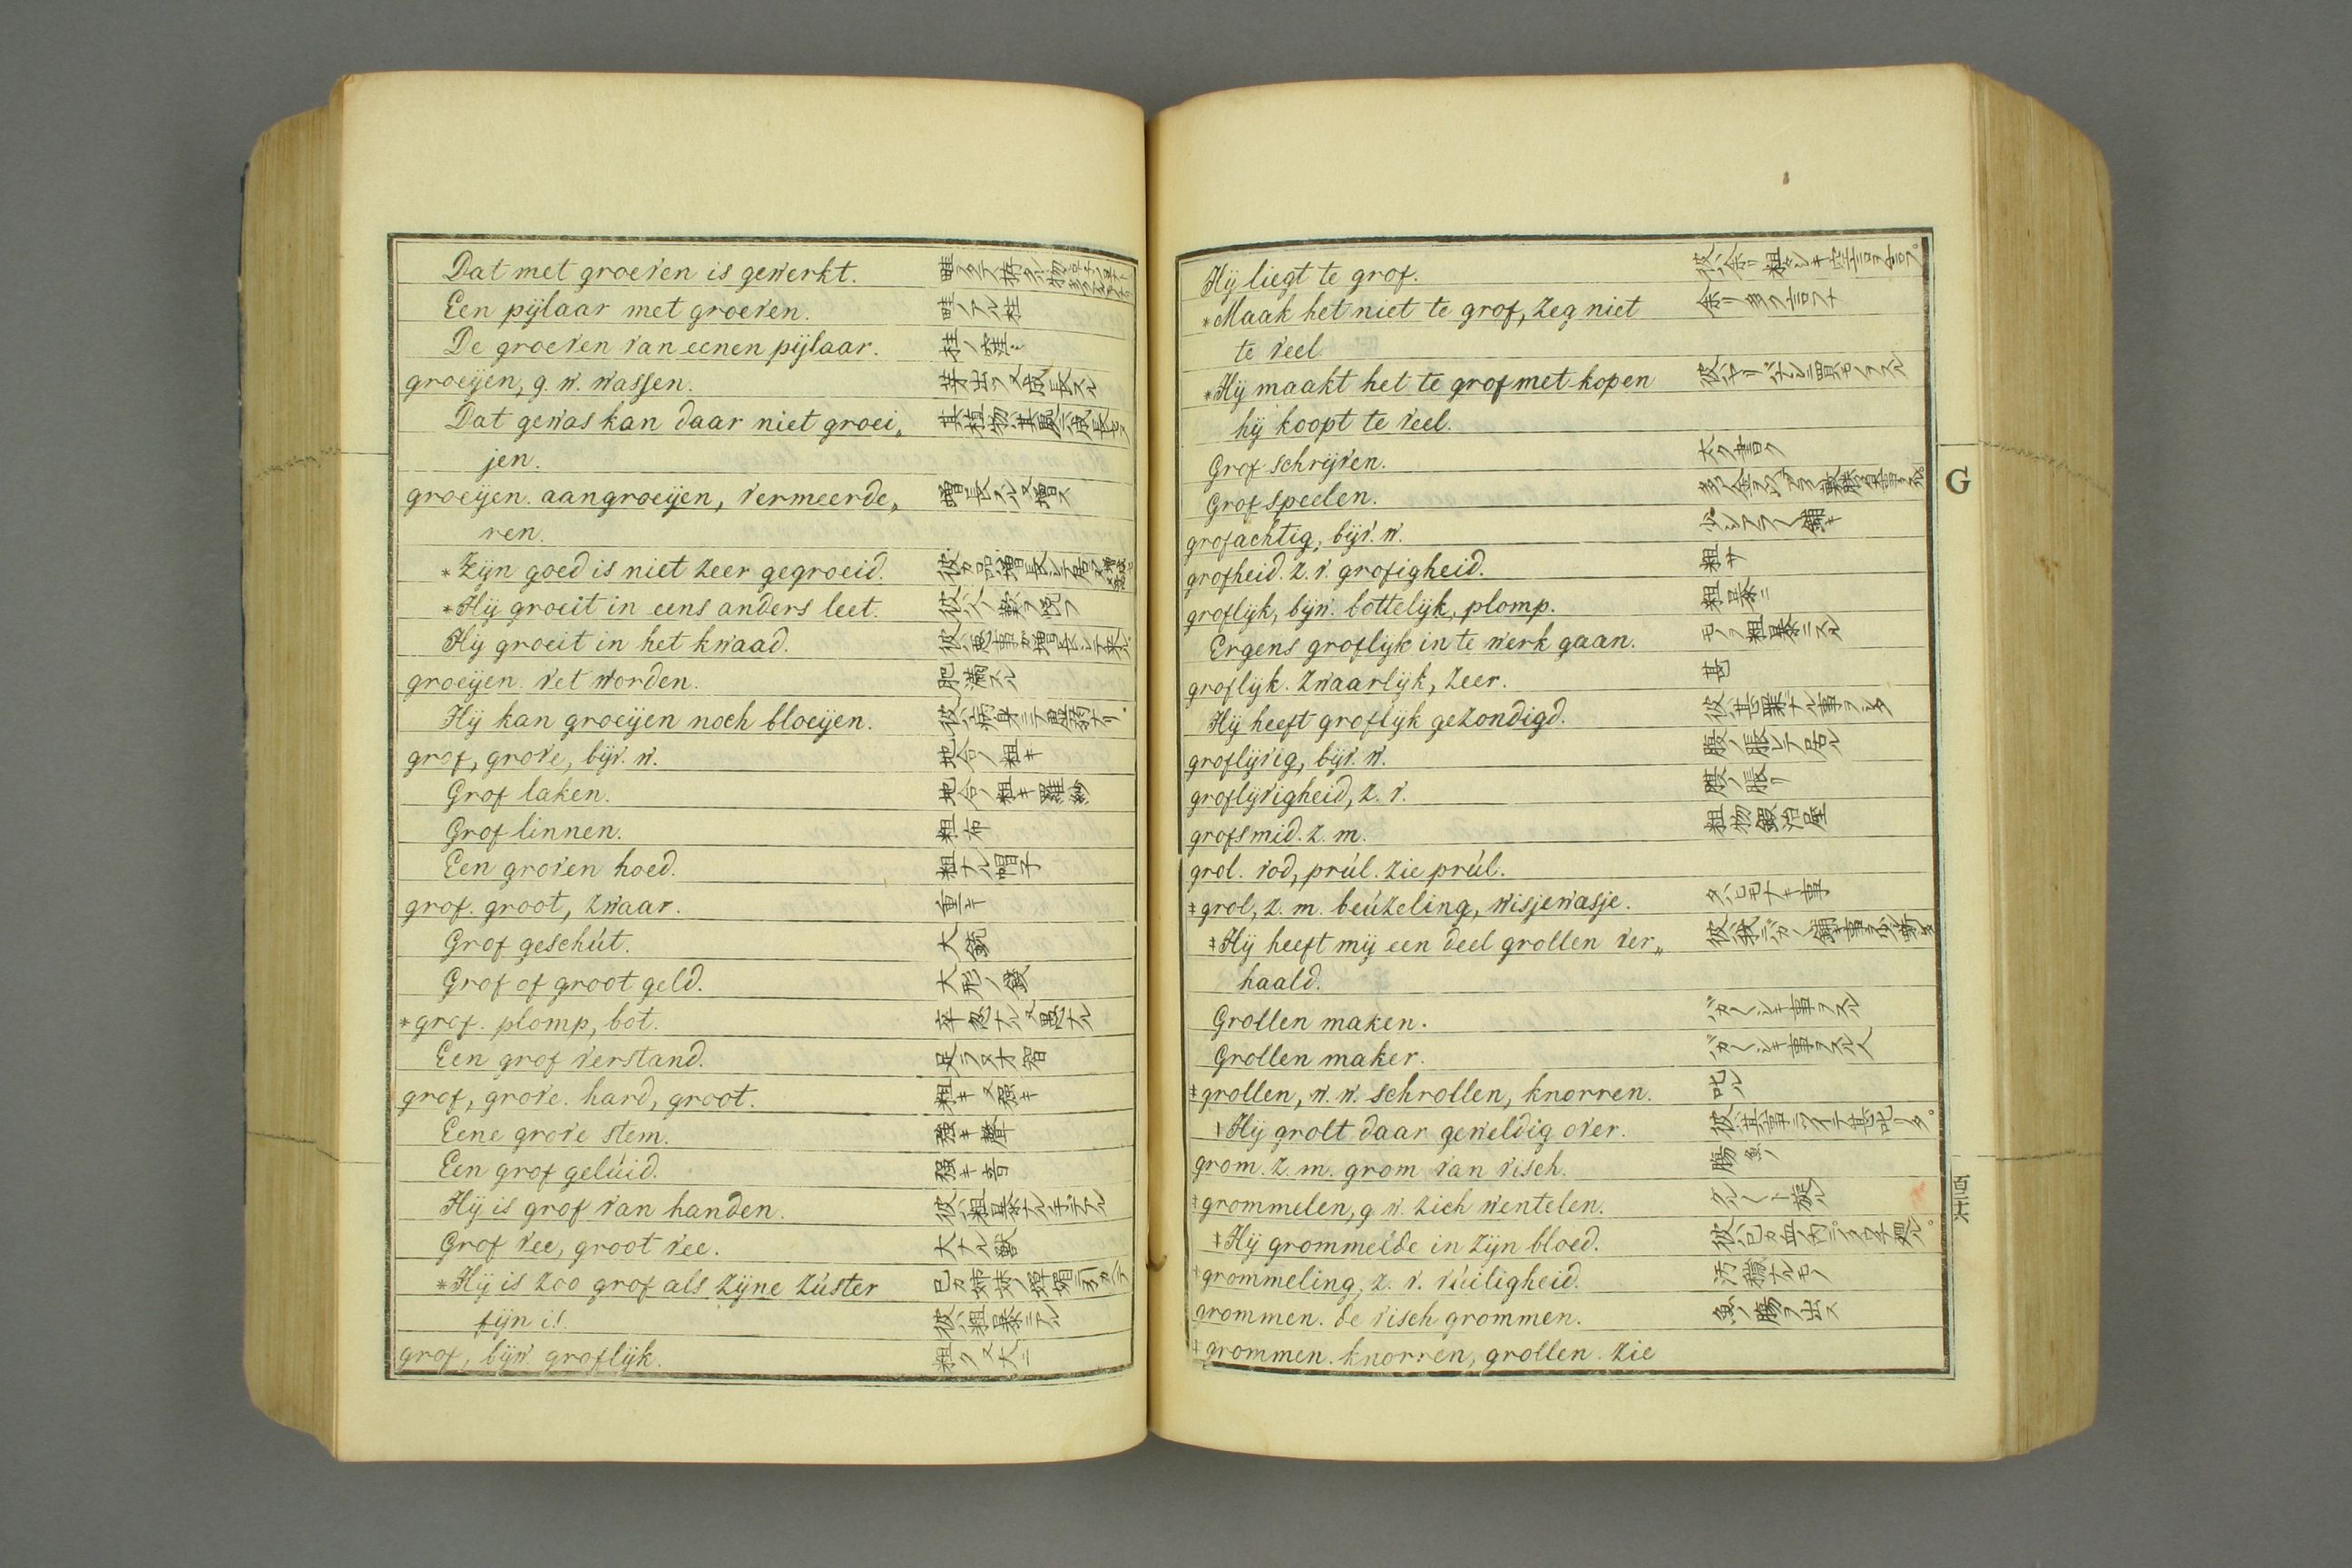 Dat met groeven is gewerkt.
Een pijlaar met groeven. 畦ノアル柱
De groeven van eenen pijlaar. 柱ノ窪ミ
groeijen, g. w. wassen. 芽出ス又成長スル
Dat gewas kan daar niet groei„ 其植物ハ其処ニ成長セヌ
jen.
groeijen. aangroeijen, vermeerde„ 増長スル又増ス
ren.
*Zijn goed is niet zeer gegroeid.
*Hij groeit in eens anders leet. 彼ハ人ノ歎ヲ悦フ
Hij groeit in het kwaad. 彼ハ悪事ガ増長シテ来ル
groeijen. vet worden. 肥満スル
Hij kan groeijen noch bloeijen.
grof, grove, bijv. w. 地合ノ粗キ
Grof laken. 地合ノ粗キ羅紗
Grof linnen. 粗布
Een groven hoed. 粗ナル帽子
grof. groot, zwaar. 重キ
Grof geschút. 大銃
Grof of groot geld. 大形ノ錢
*grof. plomp, bot. 卒忽ナル又愚ナル
Een grof verstand. 足ラヌ才智
grof, grove. hard, groot. 粗キ又强キ
Eene grove stem. 强キ聲
Een grof gelúid. 强キ音
Hij is grof van handen. 彼ハ粗暴ナル手デアル
Grof vee, groot vee. 大ナル獸
*Hij is zoo grof als zijne zúster
fijn is. 彼ハ粗暴デアル
grof, bijw. groflijk. 粗ク又大ニ
Hij liegt te grof. 彼ハ余リ粗々シキ空言ヲ言フ
*Maak het niet te grof, zeg niet 余リ多ク言フナ
te veel.
*Hij maakt het te grof met kopen
hij koopt te veel.
Grof schrijven. 太ク書ク
Grof speelen.
G
grofachtig, bijv. w.
grofheid. z. v. grofigheid. 粗サ
groflijk, bijw. bottelijk, plomp. 粗暴ニ
Ergens groflijk in te werk gaan. モノヲ粗暴ニスル
groflijk. zwaarlijk, zeer. 甚
Hij heeft groflijk gezondigd. 彼ハ甚罪ナル事ヲシタ
groflijvig, bijv. w. 腹ノ脹レテ居ル
groflijvigheid, z. v. 腹ノ脹リ
grofsmid. z. m. 粗物鍛冶屋
grol. vod, prúl. zie prúl.
‡grol, z. m. beúzeling, wisjewasje. タハモナキ事
‡Hij heeft mij een deel grollen ver„
haald.
Grollen maken. バカ〱シキ事ヲスル
Grollen maker. バカ〱シキ事ヲスル人
‡grollen, w. w. schrollen, knorren. 叱ル
‡Hij grolt daar geweldig over. 彼ハ其事ニツイテ甚叱リタ
grom. z. m. grom van visch. 魚ノ膓
‡grommelen, g. w. zich wentelen. クル〱ト旋ル
‡Hij grommelde in zijn bloed.
‡grommeling, z. v. vúiligheid. 汚穢ナルモノ
grommen. de visch grommen. 魚ノ膓ヲ出ス
‡grommen. knorren, grollen. zie
百二十六